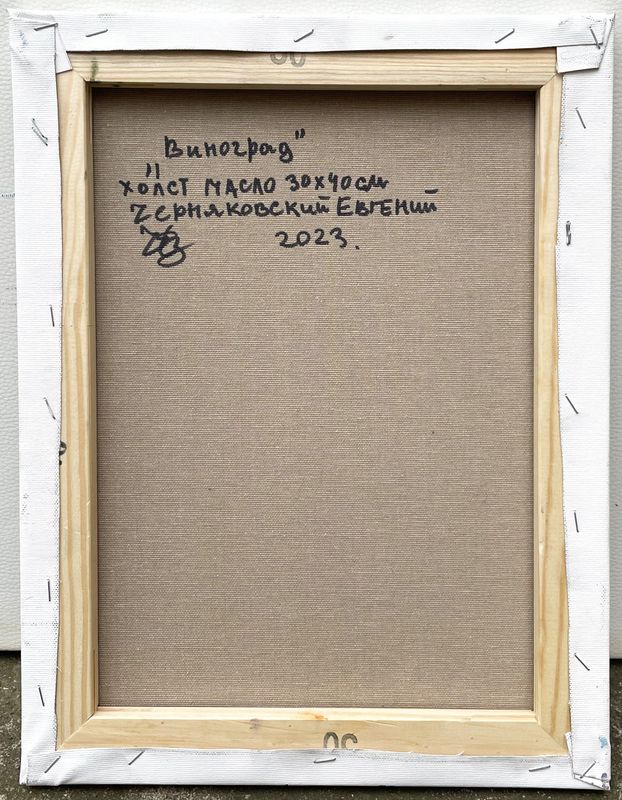 "Виноград"
холст масло 30х40см
Черняковский Евгений
2023.
30
30